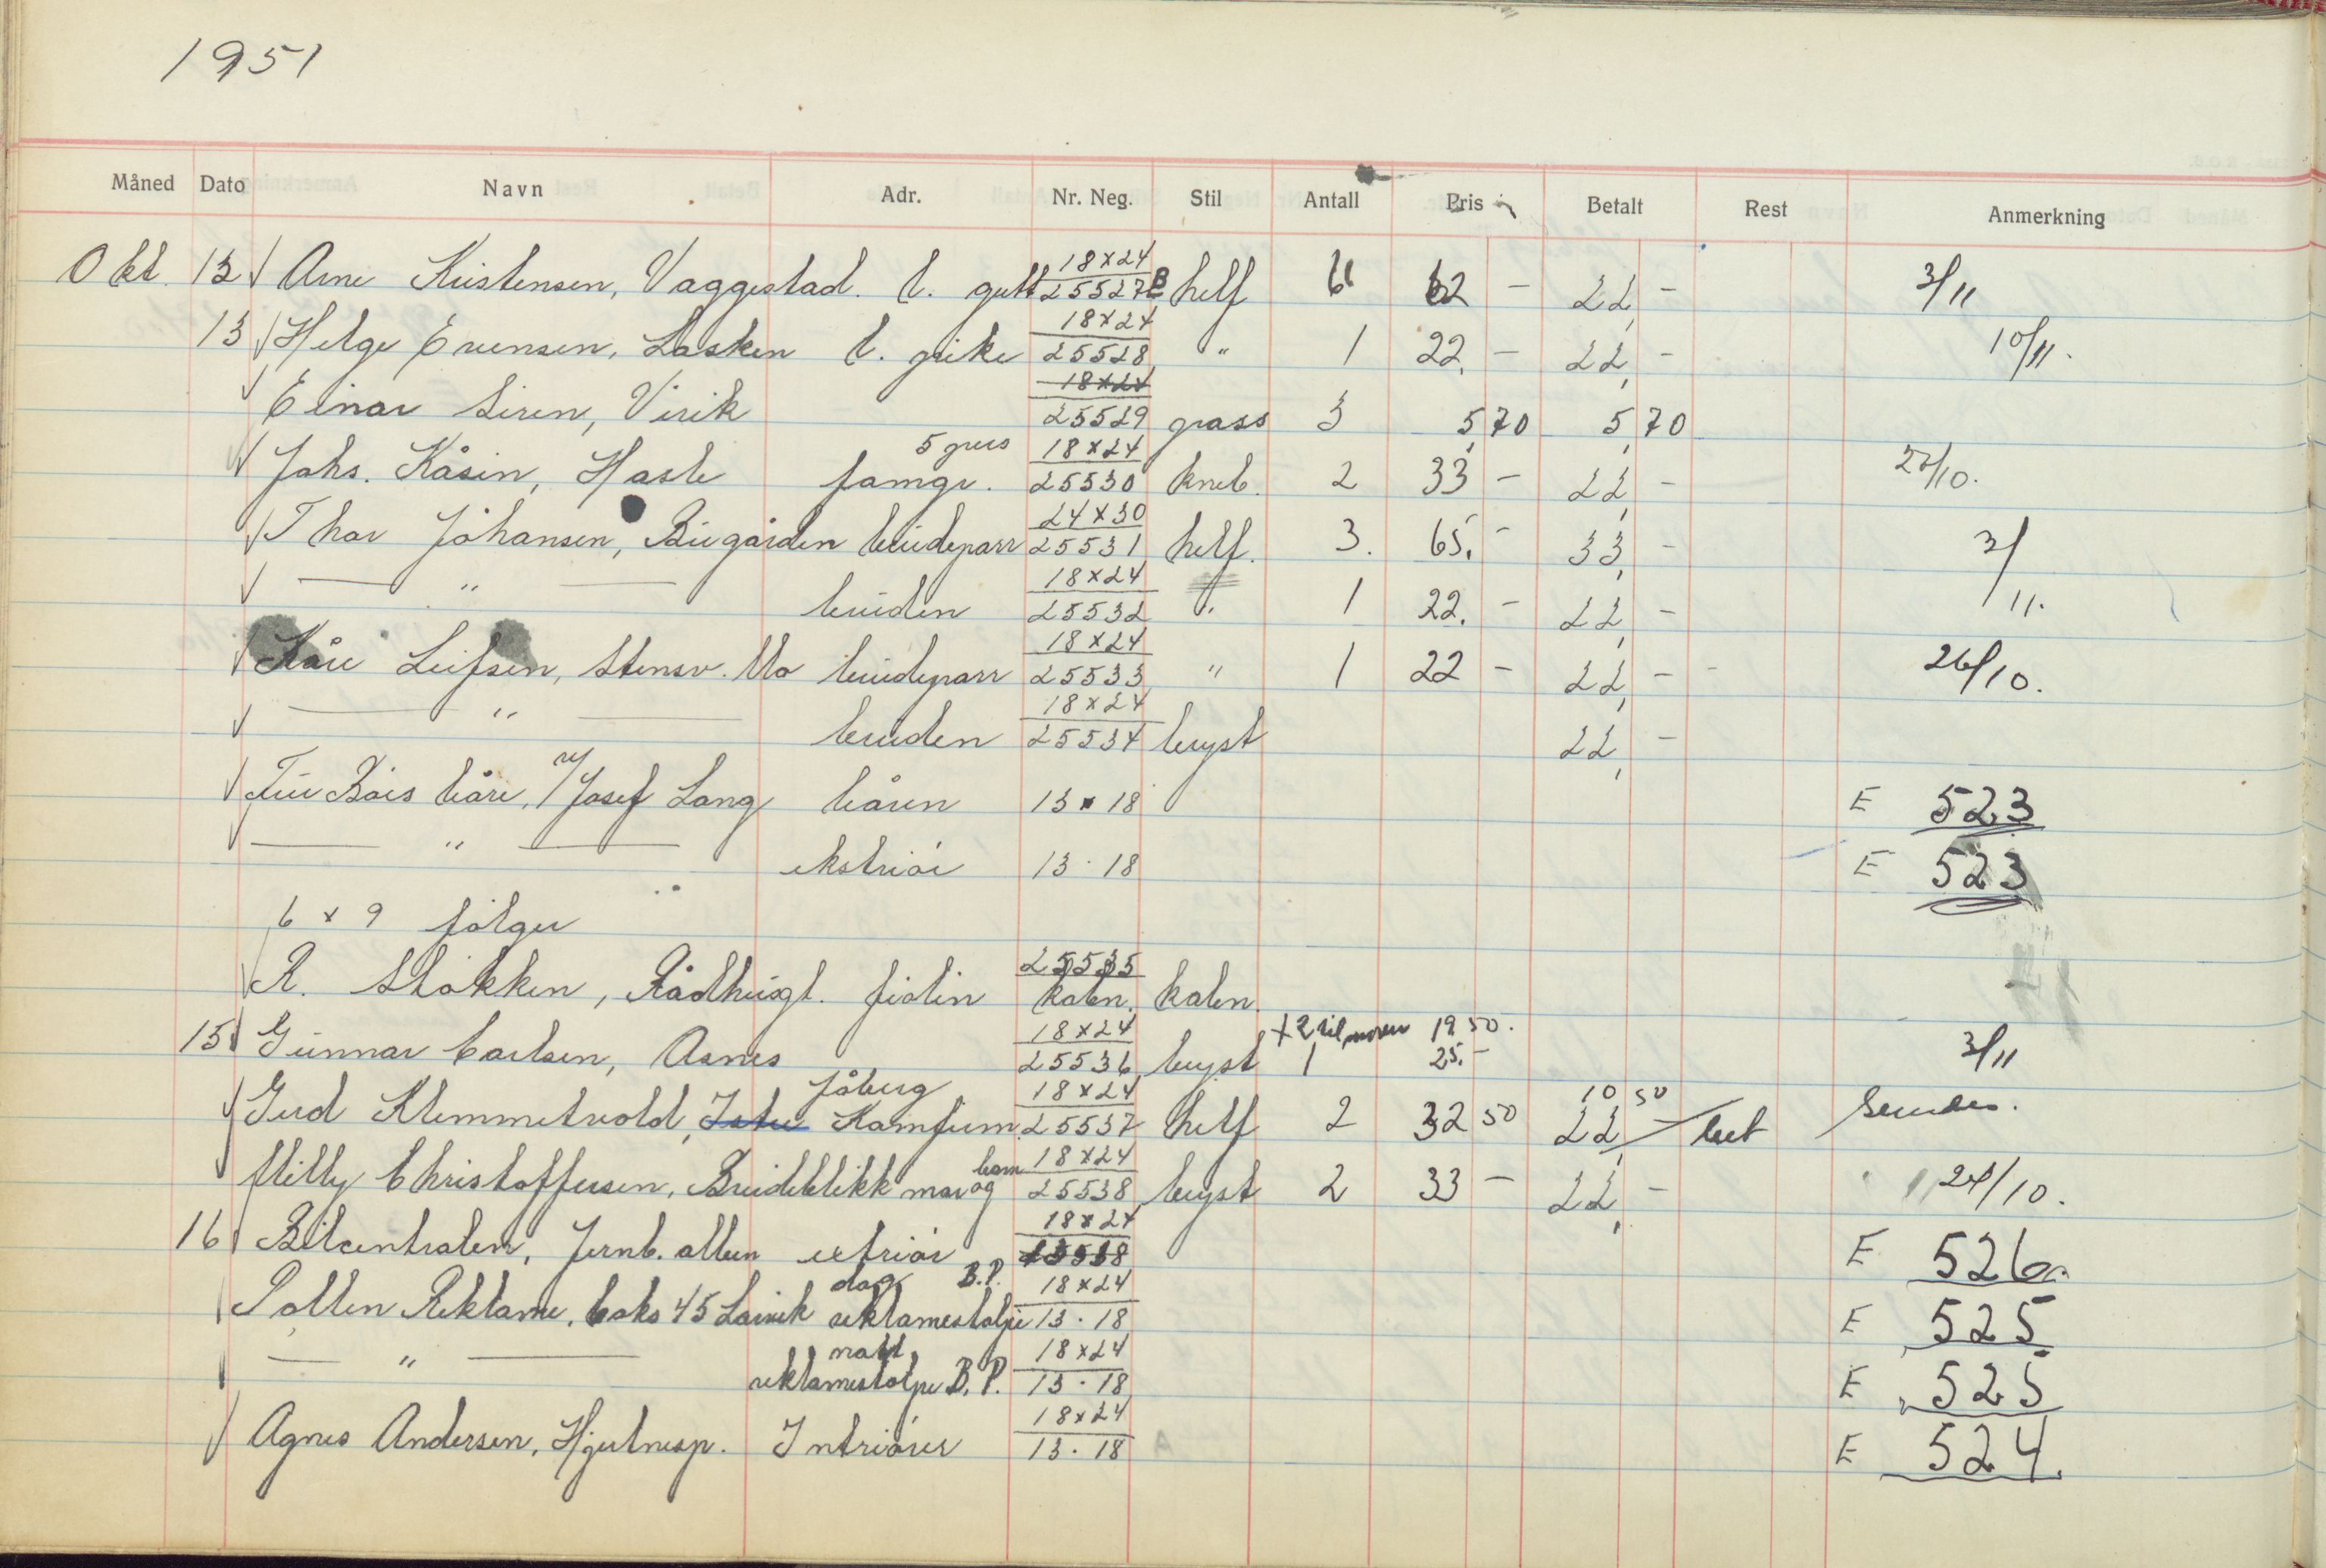 1951
Måned Dato Navn Adr. Nr. Neg. Stil Antall Pris Betalt Rest Anmerkning
18x24
Okt. 12 Arne Kristensen, Vaggestad. l. gutt 25527B helf 6 62 - 22,- 3/11
18x24
13 Helge Evensen, Lasken l. pike 25528 " 1 22,- 22,- 10/11.
18x24
Einar Siren, Virik 25529 pass 3 5,70 5,70
5 pers 18x24
Johs. Kåsin, Hasle famgr. 25530 kneb. 2 33 - 22,- 27/10.
24x30
Thor Johansen, Biegården brudeparr 25531 helf. 3. 65.- 33,- 3/11.
18x24
" bruden 25532 ". 1 22.- 22,-
18x24
Kåre Leifsen, Stensv. Mo brudeparr 25533 " 1 22 - 22,- - 26/10.
18x24
" bruden 25534 bryst 22,-
Fru Bois båre, v/ Josef Lang båren 13x18 E 523
" ekstriør 13·18 E 523
6 x 9 følger
25535
R. Stokken, Rådhusgt. fiolin kabn. kabn.
18x24 + 2 til moren 19 50.
15 Gunnar Carlsen, Asnes 25536 bryst 1 25.- 3/11
Jåberg 18x24 10 50
Gerd Klemmetvold, Kamfjem. 25537 helf 2 32 50 22,- Sendes.
barn 18x24
Milly Christoffersen, Breideblikk mor og 25538 bryst 2 33 - 22,- 24/10.
18x24
16 Bilcentralen, Jernb. alleen extriør 25538 E 526.
dag B.P. 18x24
Pollen Reklame, boks 45 Larvik reklamestolpe 13·18 E 525
natt 18x24
" reklamestolpe B.P. 13·18 E 525
18x24
Agnes Andersen, Hjertnesp. Intriører 13·18 E 524.